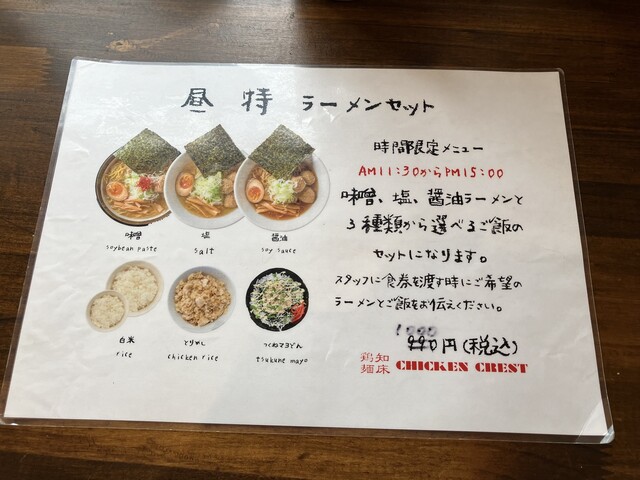 昼特 ラーメンセット
時間限定メニュー
AM11:30からPM15:00
味噌、塩、醤油ラーメンと
3種類から選べるご飯の
セットになります。
スタッフに食券を渡す時にご希望の
ラーメンとご飯をお伝えください。
1000
990円(税込)
鶏知
麺床
CHICKEN CREST
味噌
soybean paste
塩
salt
醤油
soy sauce
白米
rice
とりめし
chicken rice
つくねマヨどん
tsukune mayo